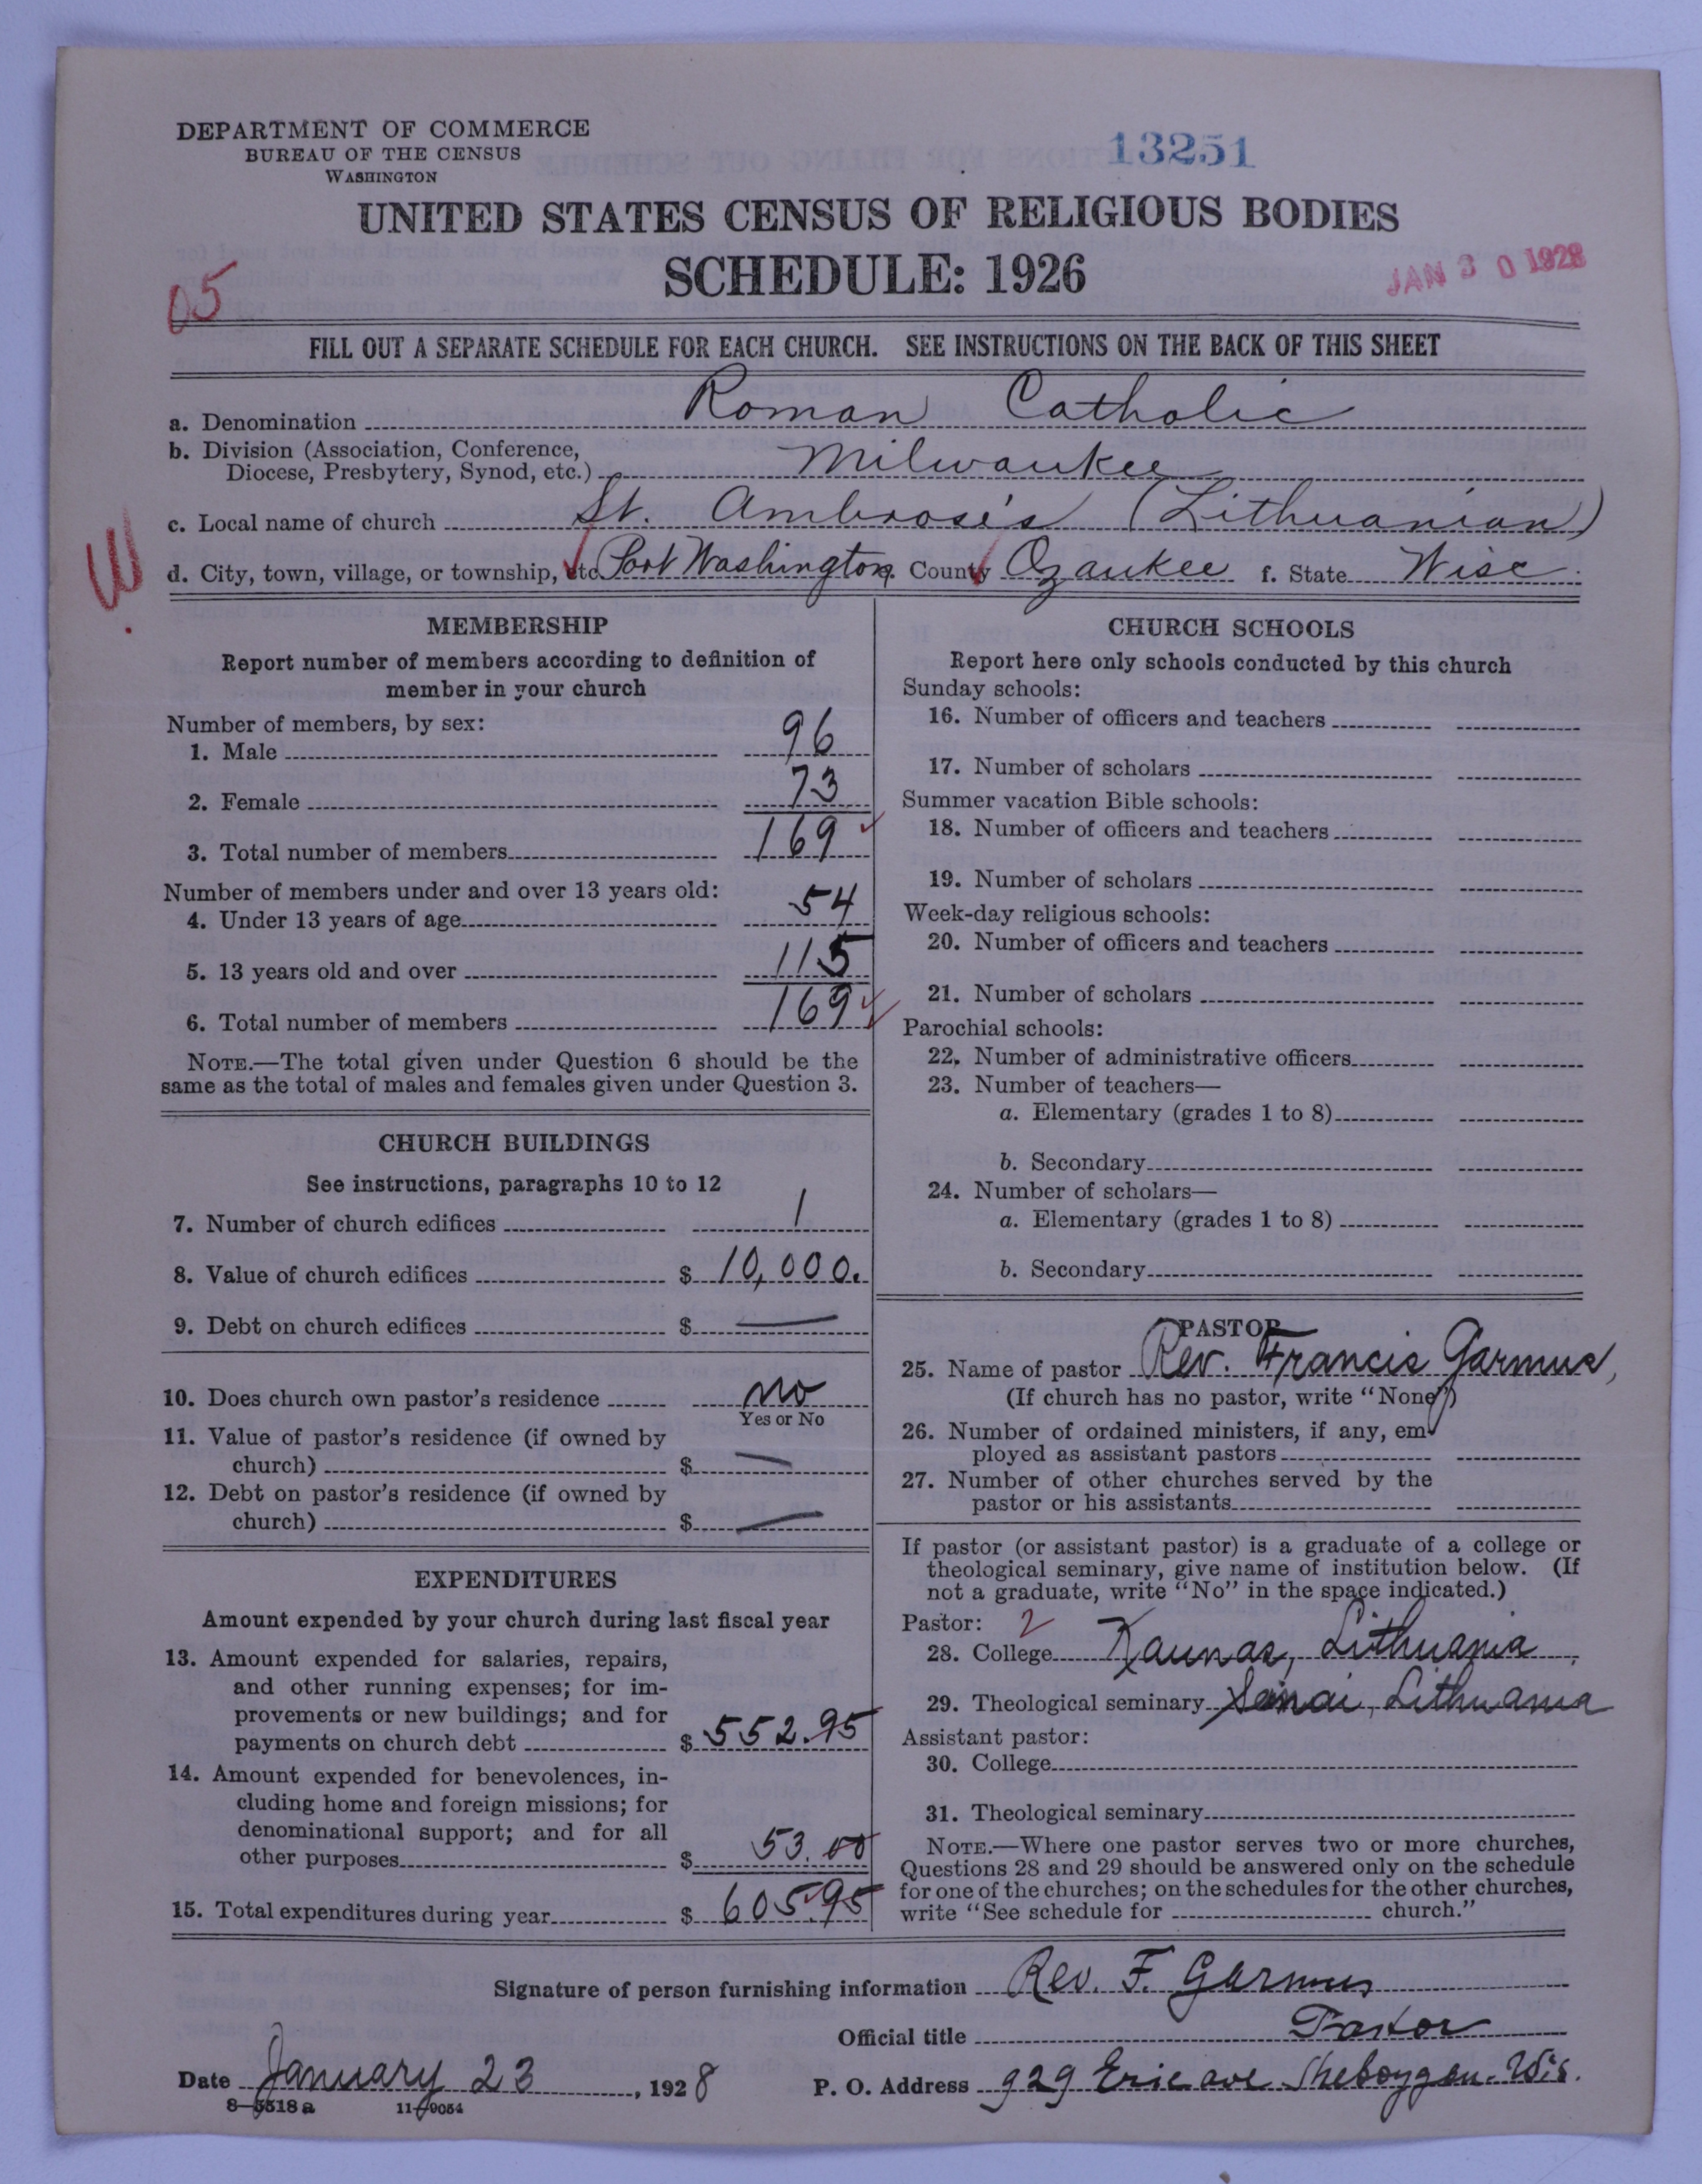 DEPARTMENT OF COMMERCE
BUREAU OF THE CENSUS
WASHINGTON
13251
UNITED STATES CENSUS OF RELIGIOUS BODIES
SCHEDULE: 1926
JAN 30 1928
05
FILL OUT A SEPARATE SCHEDULE FOR EACH CHURCH. SEE INSTRUCTIONS ON THE BACK OF THIS SHEET
a. Denomination Roman Catholic
b. Division (Association, Conference,
Diocese, Presbytery, Synod, etc.) Milwaukee
c. Local name of church St. Ambrose's (Lithuanian)
d. City, town, village, or township, etc. Port Washington e. County Ozaukee f. State Wisc.
MEMBERSHIP
Report number of members according to definition of
member in your church
Number of members, by sex:
1. Male 96
2. Female 73
3. Total number of members 169
Number of members under and over 13 years old:
4. Under 13 years of age 54
5. 13 years old and over 115
6. Total number of members 169
NOTE.—The total given under Question 6 should be the
same as the total of males and females given under Question 3.
CHURCH BUILDINGS
See instructions, paragraphs 10 to 12
7. Number of church edifices 1
8. Value of church edifices $ 10,000.
9. Debt on church edifices $ —
10. Does church own pastor's residence no
Yes or No
11. Value of pastor's residence (if owned by
church) $ —
12. Debt on pastor's residence (if owned by
church) $ —
EXPENDITURES
Amount expended by your church during last fiscal year
13. Amount expended for salaries, repairs,
and other running expenses; for im-
provements or new buildings; and for
payments on church debt $ 552.95
14. Amount expended for benevolences, in-
cluding home and foreign missions; for
denominational support; and for all
other purposes $ 53.00
15. Total expenditures during year $ 605.95
CHURCH SCHOOLS
Report here only schools conducted by this church
Sunday schools:
16. Number of officers and teachers
17. Number of scholars
Summer vacation Bible schools:
18. Number of officers and teachers
19. Number of scholars
Week-day religious schools:
20. Number of officers and teachers
21. Number of scholars
Parochial schools:
22. Number of administrative officers
23. Number of teachers—
a. Elementary (grades 1 to 8)
b. Secondary
24. Number of scholars—
a. Elementary (grades 1 to 8)
b. Secondary
PASTOR
25. Name of pastor Rev. Francis Garmus,
(If church has no pastor, write "None")
26. Number of ordained ministers, if any, em-
ployed as assistant pastors
27. Number of other churches served by the
pastor or his assistants
If pastor (or assistant pastor) is a graduate of a college or
theological seminary, give name of institution below. (If
not a graduate, write "No" in the space indicated.)
Pastor: 2
28. College Kaunas, Lithuania,
29. Theological seminary Lithuania
Assistant pastor:
30. College
31. Theological seminary
NOTE.—Where one pastor serves two or more churches,
Questions 28 and 29 should be answered only on the schedule
for one of the churches; on the schedules for the other churches,
write "See schedule for church."
Signature of person furnishing information Rev. F. Garmus
Official title Pastor
Date January 23, 1928 P. O. Address 929 Erie ave Sheboygan. Wis.
8—5518 a 11—9054